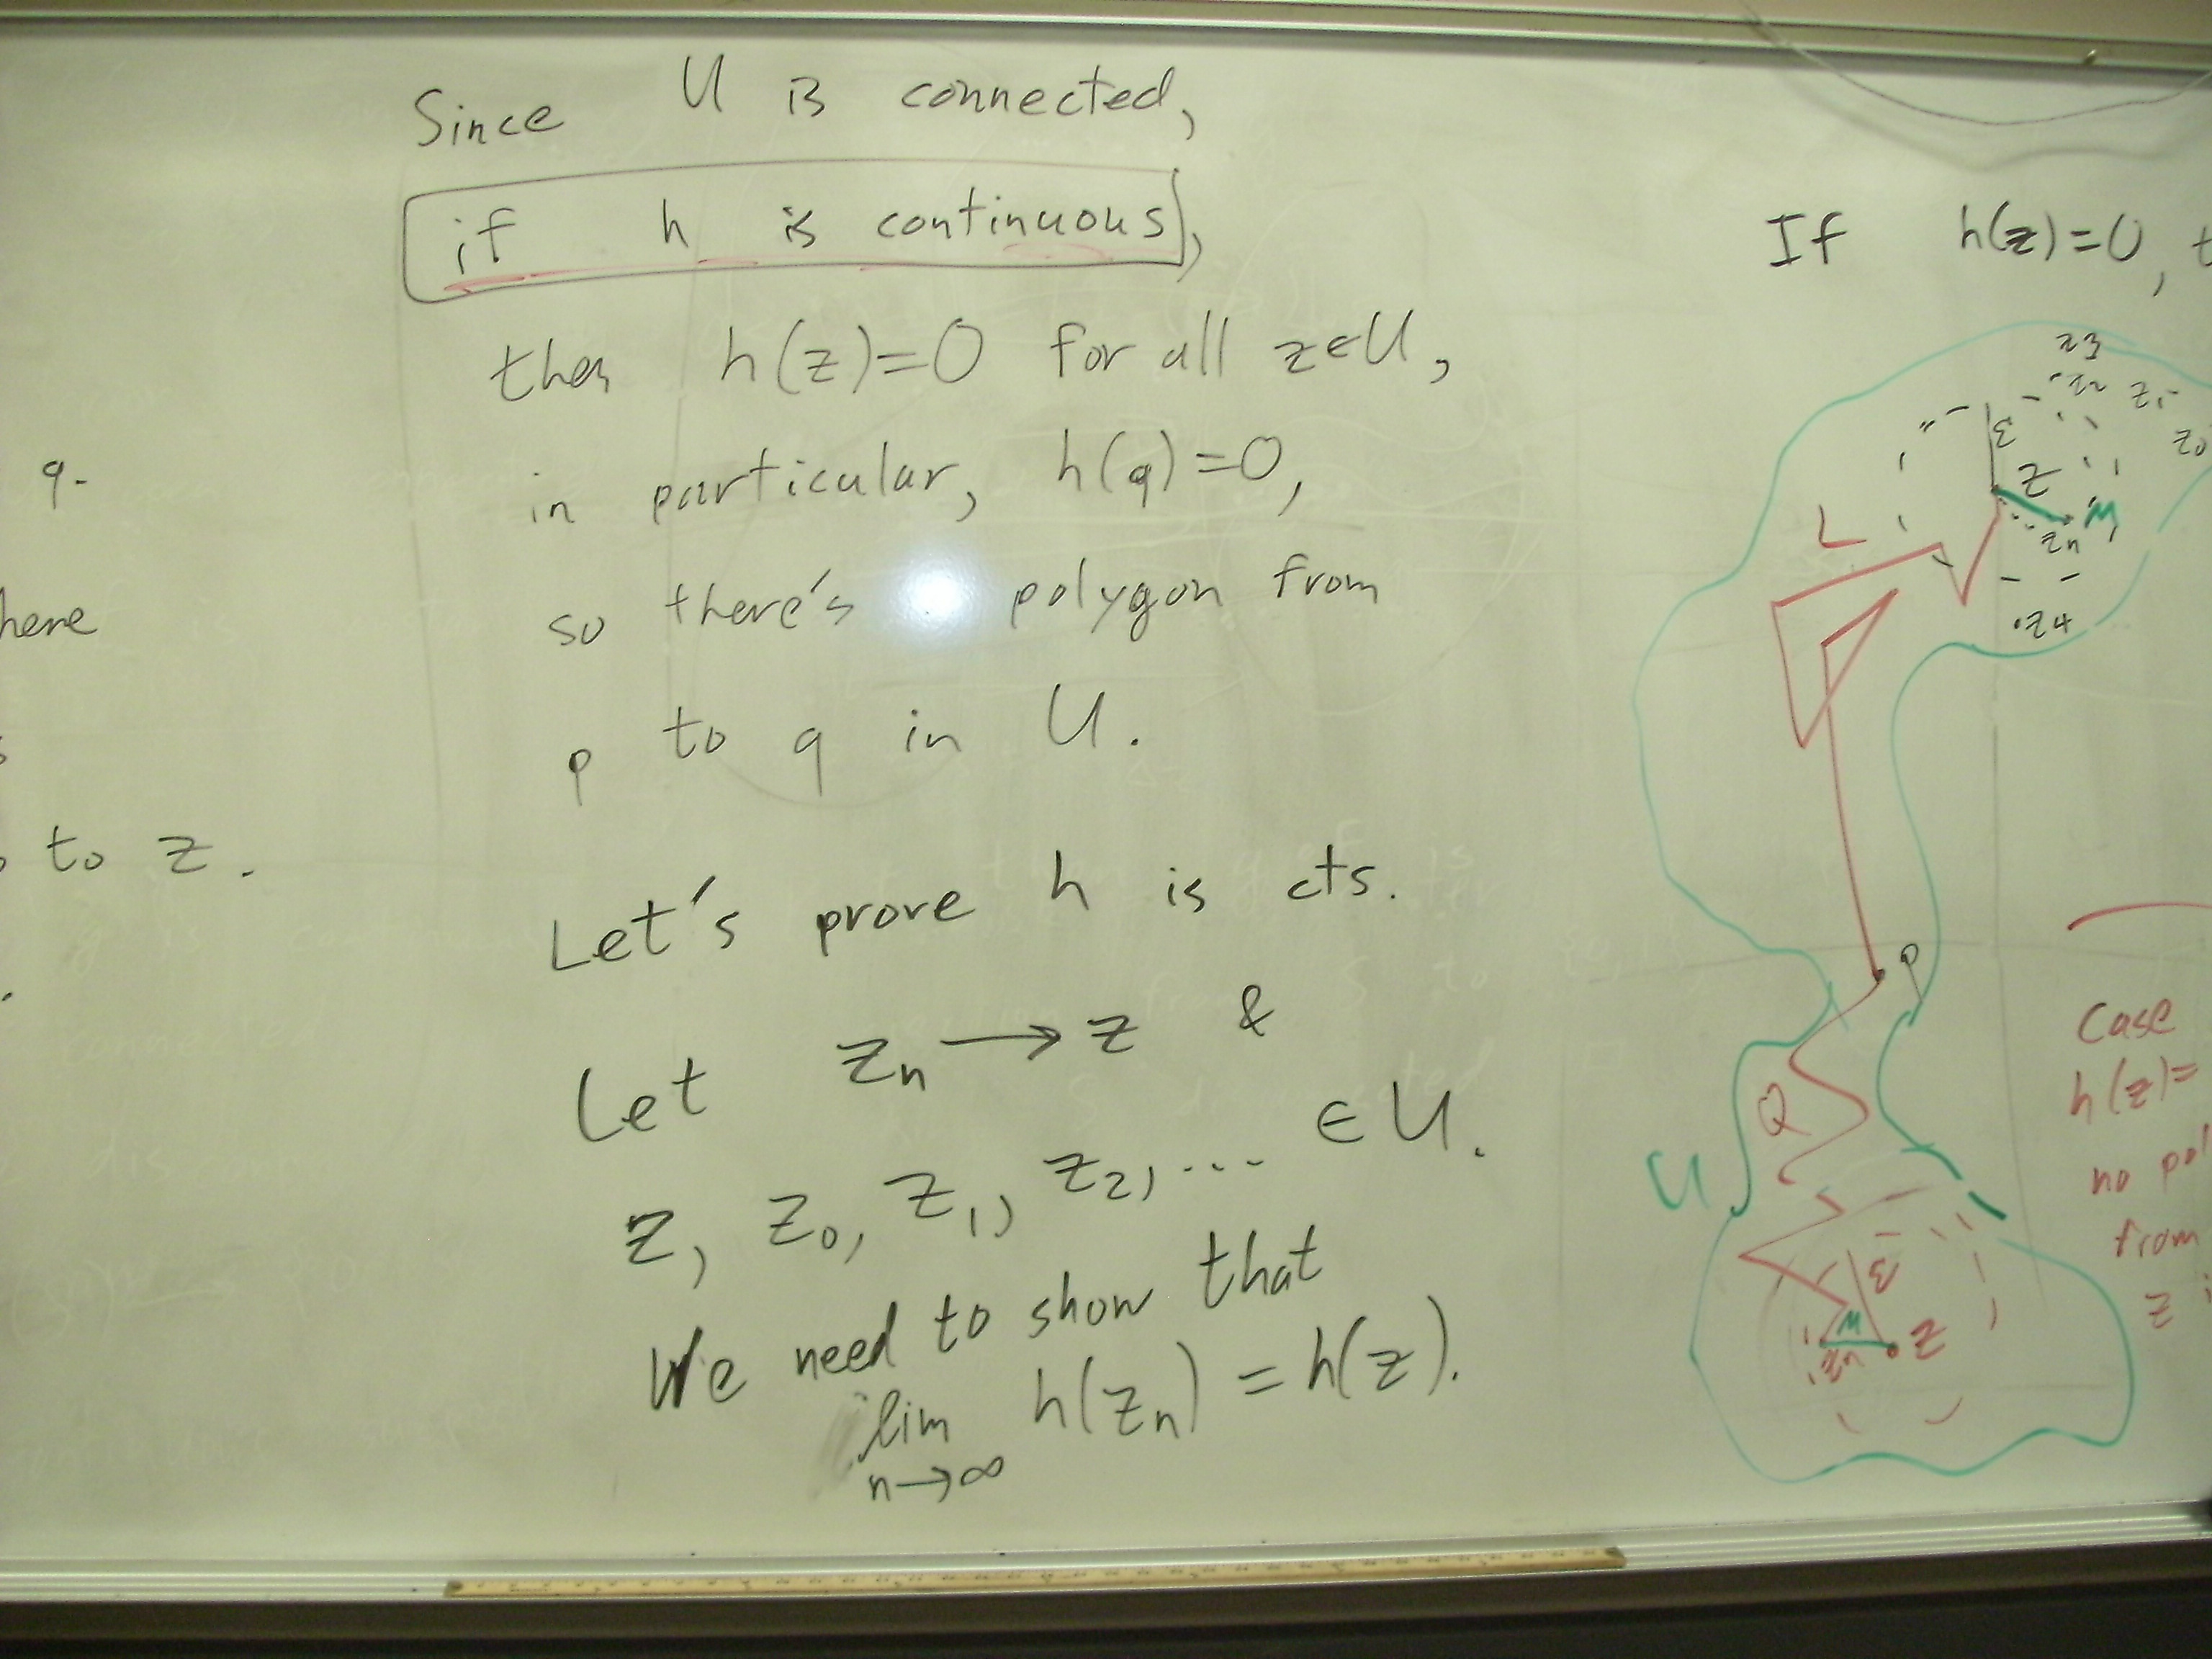 q.
here
to z.
Since U is connected,
if h is continuous,
then h(z)=0 for all z∈U,
in particular, h(q)=0,
so there's polygon from
p to q in U.
Let's prove h is cts.
Let zn → z &
z, z0, z1, z2, ... ∈ U.
We need to show that
lim h(zn) = h(z).
n→∞
If h(z)=0,
z3
z2
z1
z0
ε
z
L
M
zn
z4
p
Q
U
ε
M
zn
z
Case
h(z)=
no pol
from
z